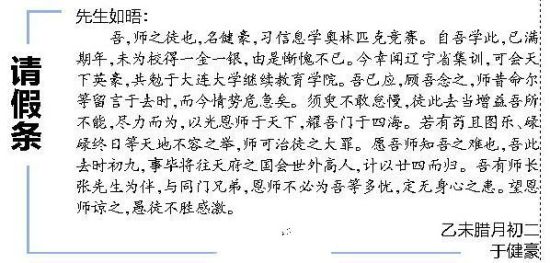 请假条
先生如晤：
吾，师之徒也，名健豪，习信息学奥林匹克竞赛。自吾学此，已满
期年，未为校得一金一银，由是惭愧不已。今幸闻辽宁省集训，可会天
下英豪，共勉于大连大学继续教育学院。吾已应，顾吾念之，师昔命尔
等留言于去时，而今情势危急矣。须臾不敢怠慢，徒此去当增益吾所
不能，尽力而为，以光恩师于天下，耀吾门于四海。若有苟且图乐、碌
碌终日等天地不容之举，师可治徒之大罪。愿吾师知吾之难也，吾此
去时初九，事毕将往天府之国会世外高人，计以廿四而归。吾有师长
张先生为伴，与同门兄弟，恩师不必为吾等多忧，定无身心之患。望恩
师谅之，愚徒不胜感激。
乙未腊月初二
于健豪